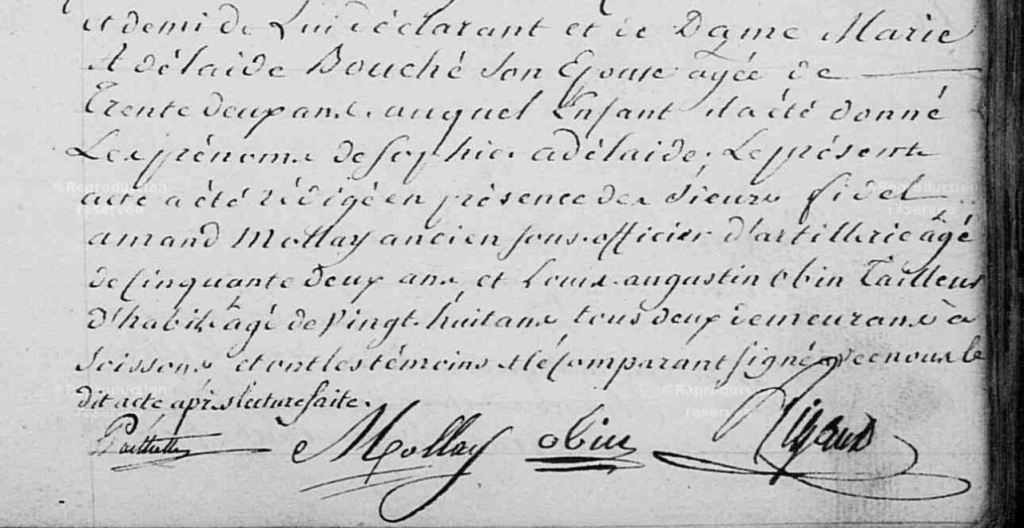 et demi de Lui déclarant et de Dame Marie
Adélaide Bouché son Epouse agée de
Trente deux ans. auquel Enfant il a été donné
Les prénoms de Sophie adélaide, Le présent
acte a été rédigé en présence des sieurs fidel
amand Mollay ancien sous-officier d'artillerie âgé
de Cinquante Deux ans et Louis augustin obin Tailleur
d'habits âgé de Vingt-huit ans tous deux demeurans à
Soissons et ont les témoins et le Comparant signé avec nous le
dit acte après lecture faite.
Mollay obin Rigaud
© Reproduction réservée
© Reproduction réservée
© Reproduction réservée
© Reproduction réservée